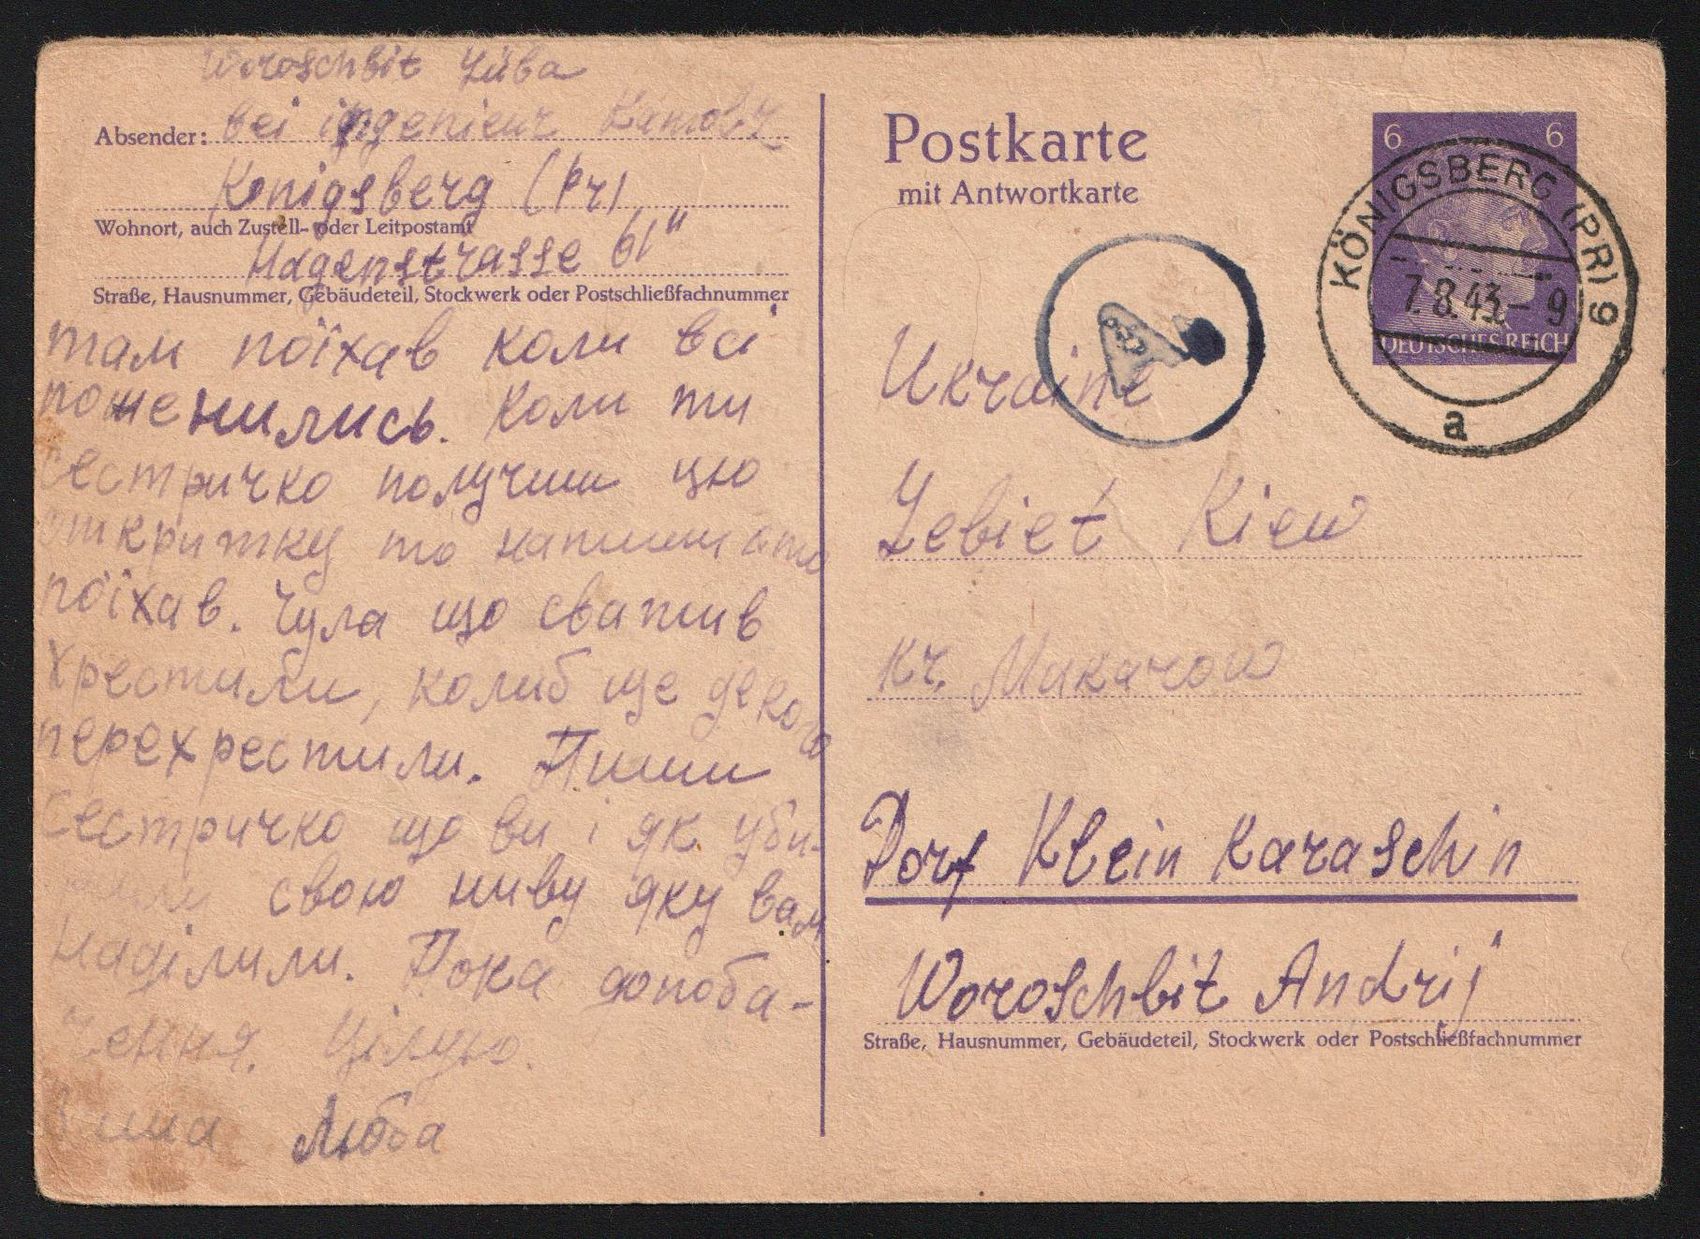 Woroschbit Lüba
Absender: bei ingenieur
Konigsberg (Pr)
Wohnort, auch Zustell- oder Leitpostamt
Hagenstrasse 61"
Straße, Hausnummer, Gebäudeteil, Stockwerk oder Postschließfachnummer
там поїхав коли всі
поженились. Коли ти
сестричко получиш цю
открытку то напиши
поїхав. Чула що сватив
хрестили, колиб ще декого
перехрестили. Пиши
сестричко що ви і як уби-
свою ниву яку вам
наділили. Пока допоба-
чення. Цілую.
Люба
Postkarte
mit Antwortkarte
6 6
DEUTSCHES REICH
KÖNIGSBERG (PR) 9
7.8.43.-9
a
A
Ukraine
Gebiet Kiew
kr. Makarow
Dorf Klein Karaschin
Woroschbit Andrij
Straße, Hausnummer, Gebäudeteil, Stockwerk oder Postschließfachnummer